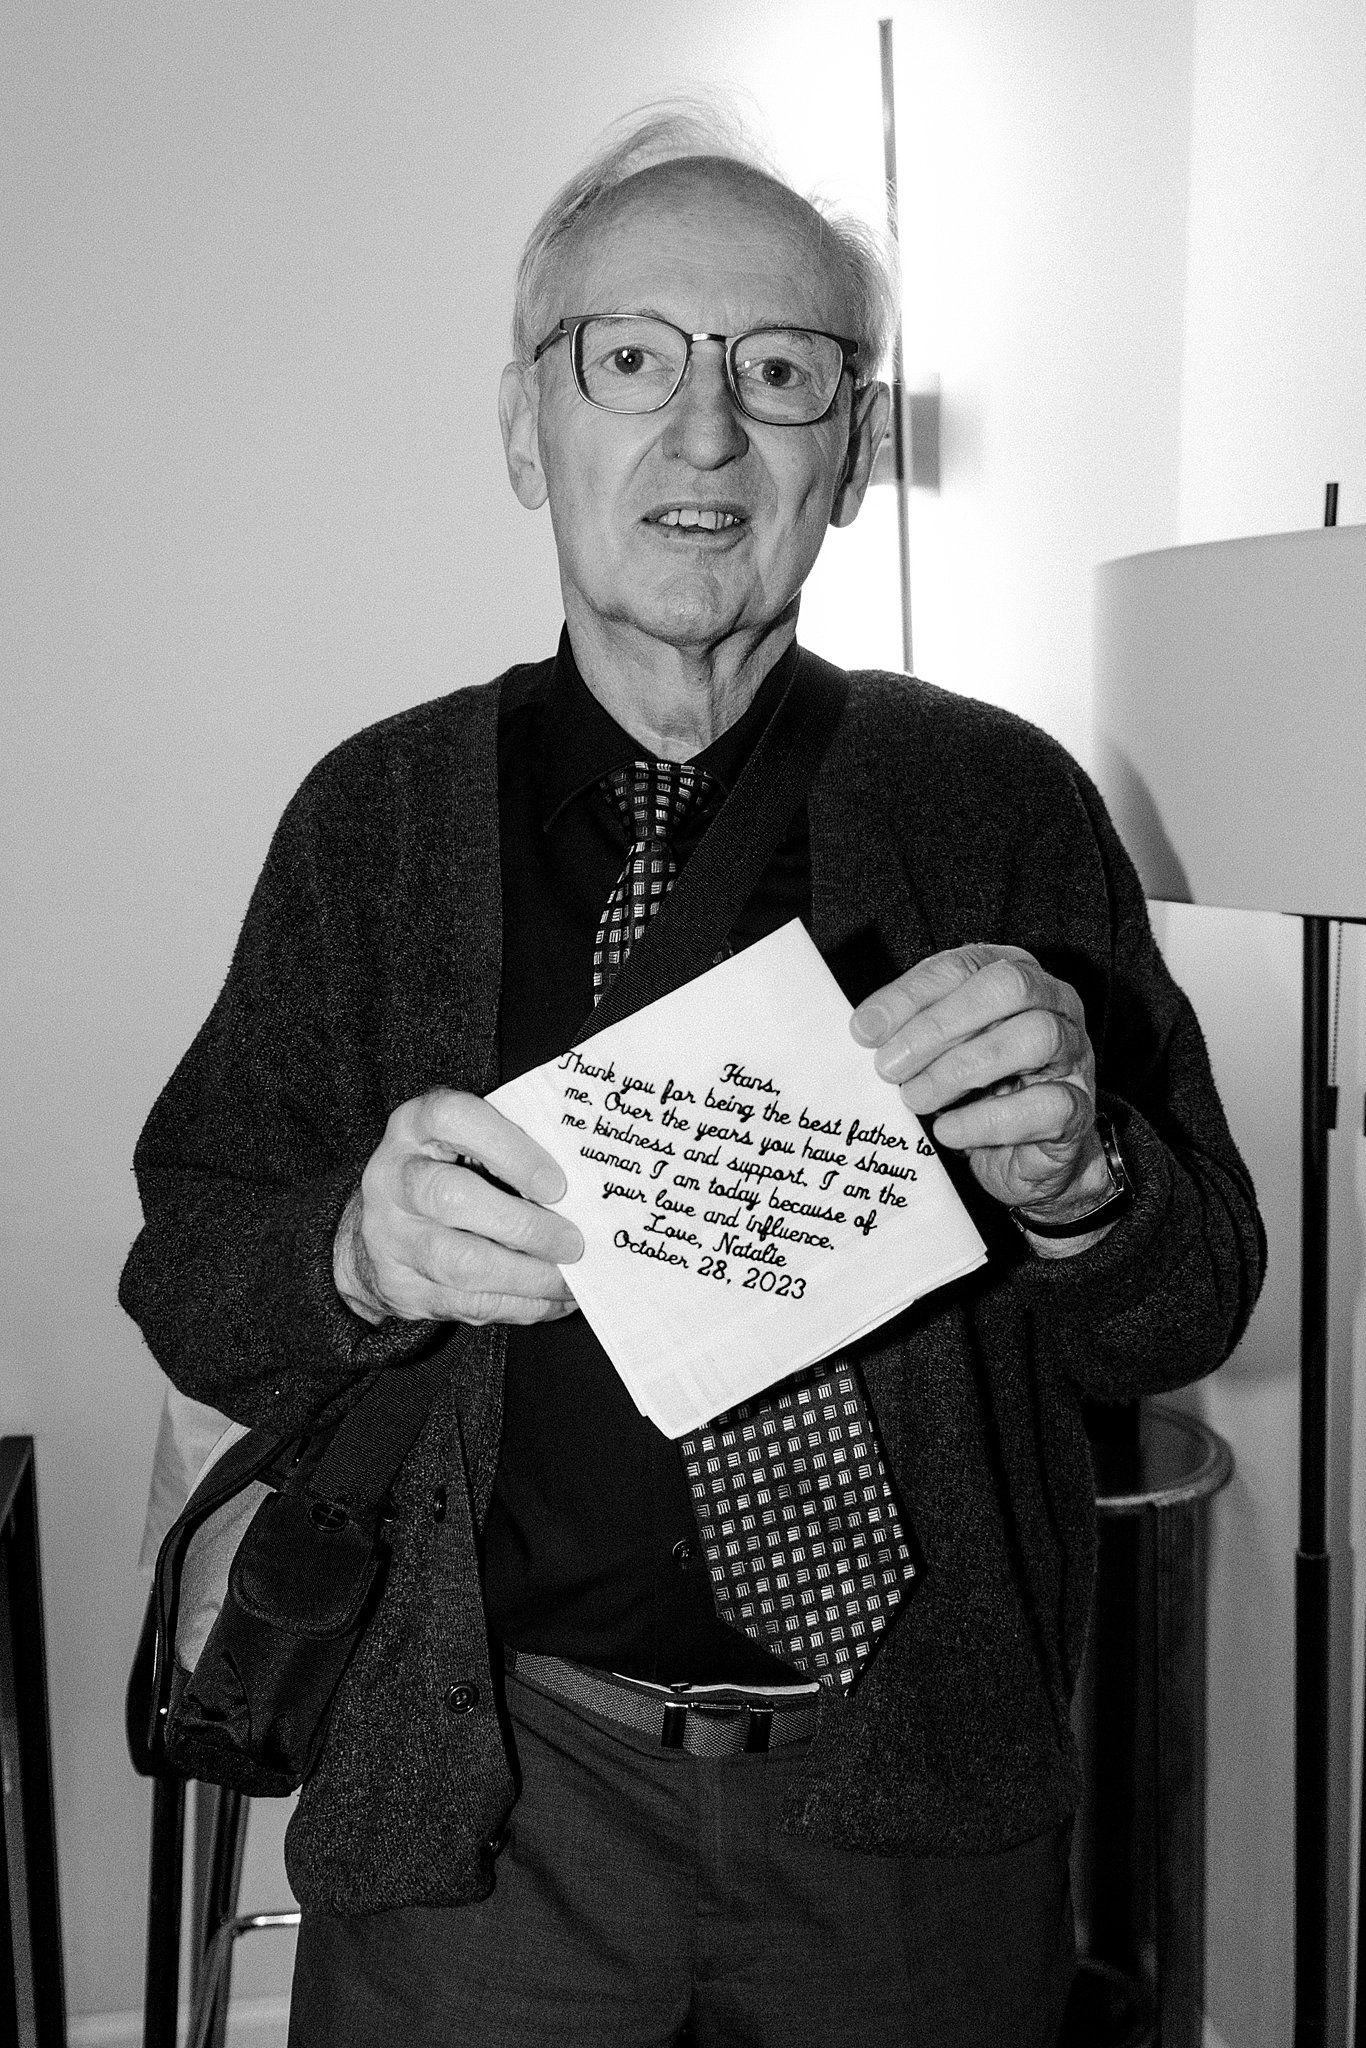 Hans,
Thank you for being the best father to
me. Over the years you have shown
me kindness and support. I am the
woman I am today because of
your love and influence.
Love, Natalie
October 28, 2023